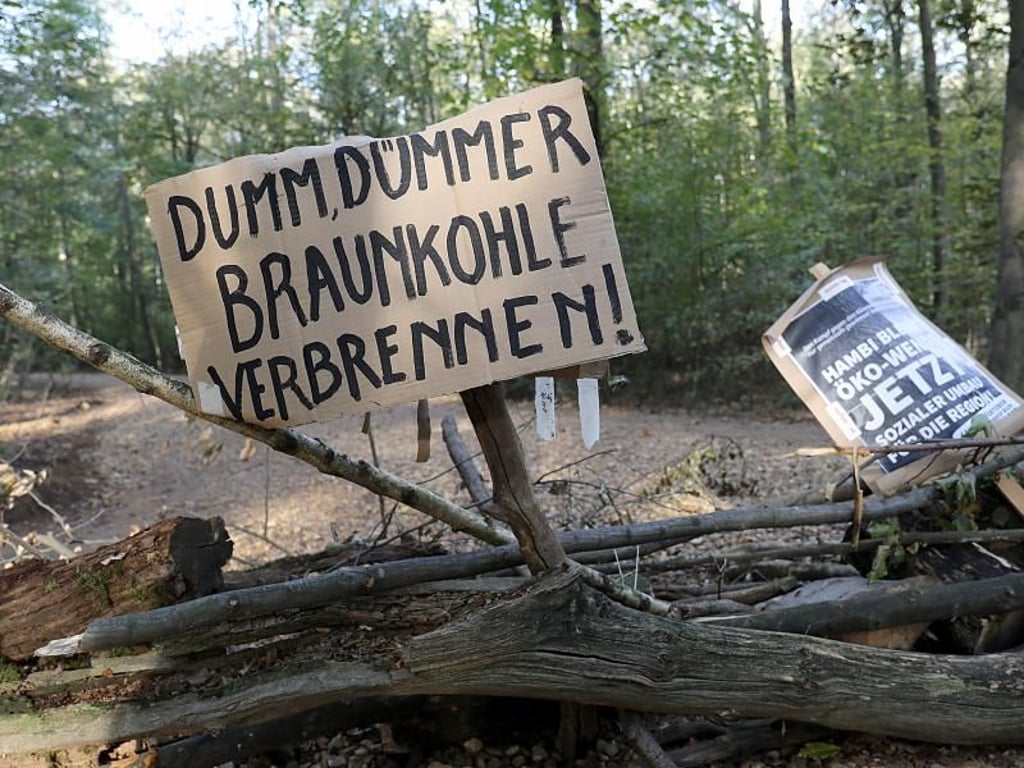 DUMM, DÜMMER
BRAUNKOHLE
VERBRENNEN!
HAMBI
ÖKO-
JETZT
SOZIALER UMBAU
FÜR DIE REGION!